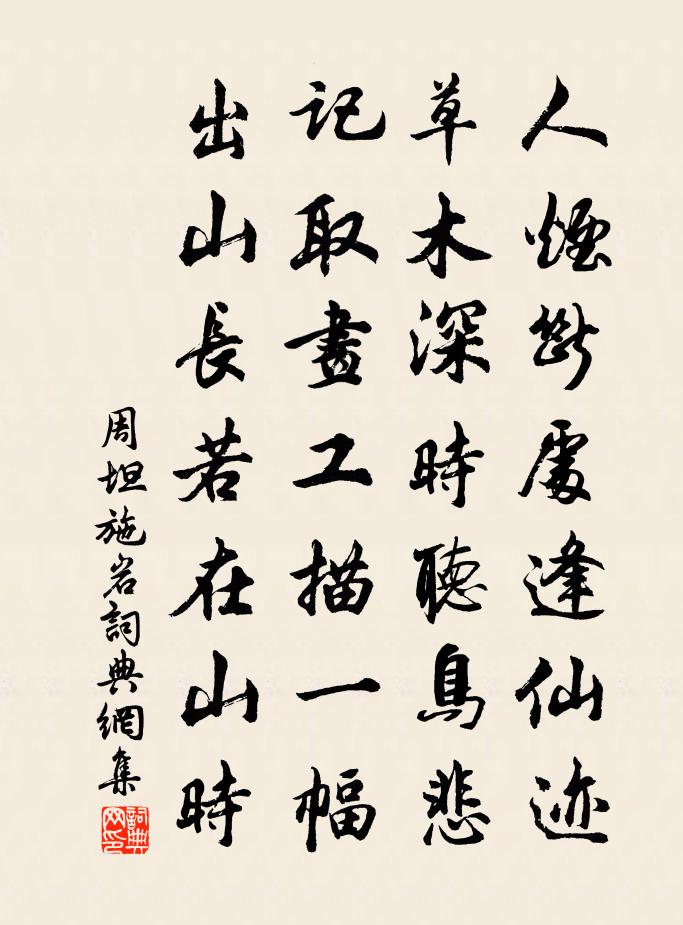 人煙斷處逢仙迹
草木深時聽鳥悲
記取畫工描一幅
出山長若在山時
周坦施岩詞典網集
詞典
网印